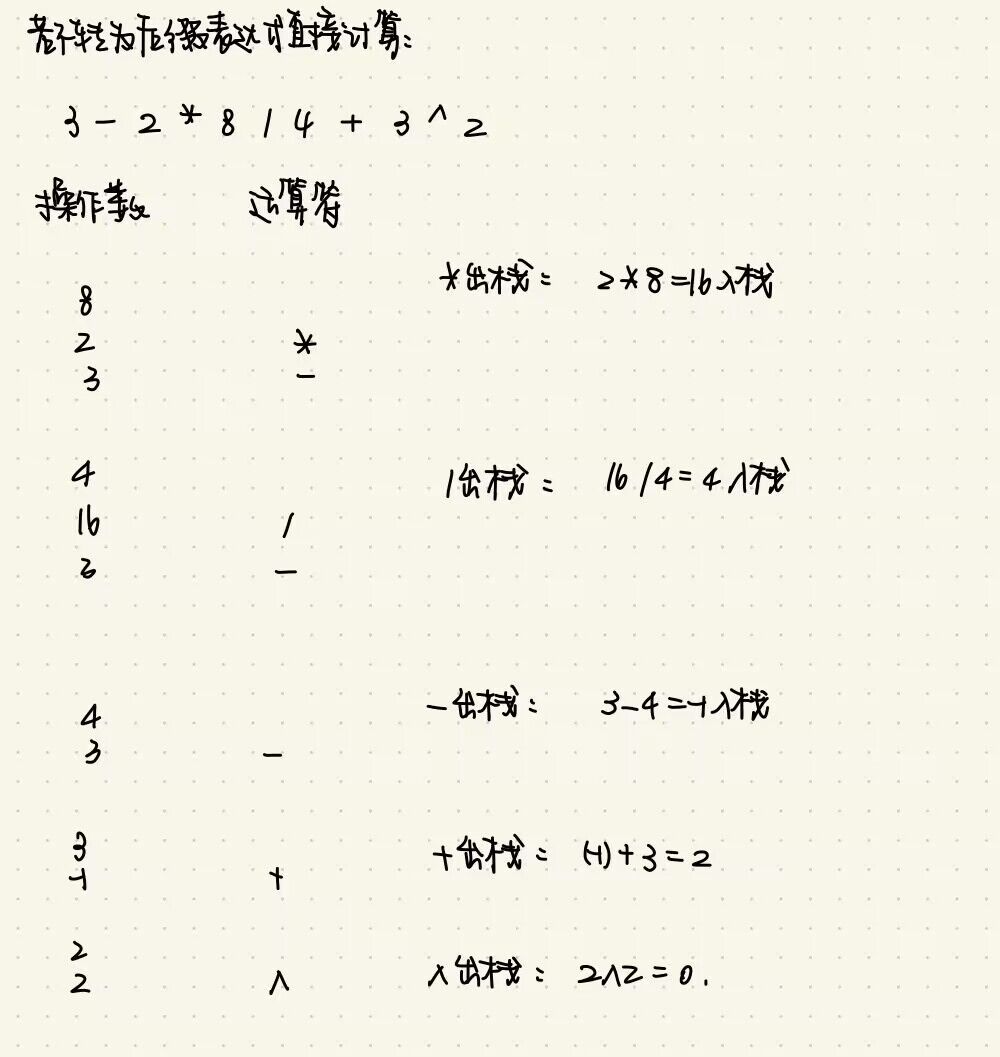 若不转为后缀表达式直接计算:
3 - 2 * 8 / 4 + 3 ^ 2
操作数 运算符
*出栈: 2*8=16入栈
8
2 *
3 -
4 /出栈: 16/4=4入栈
16 /
3 -
-出栈: 3-4=-1入栈
4
3 -
3 +出栈: (-1)+3=2
-1 +
2 ^出栈: 2^2=0.
2 ^